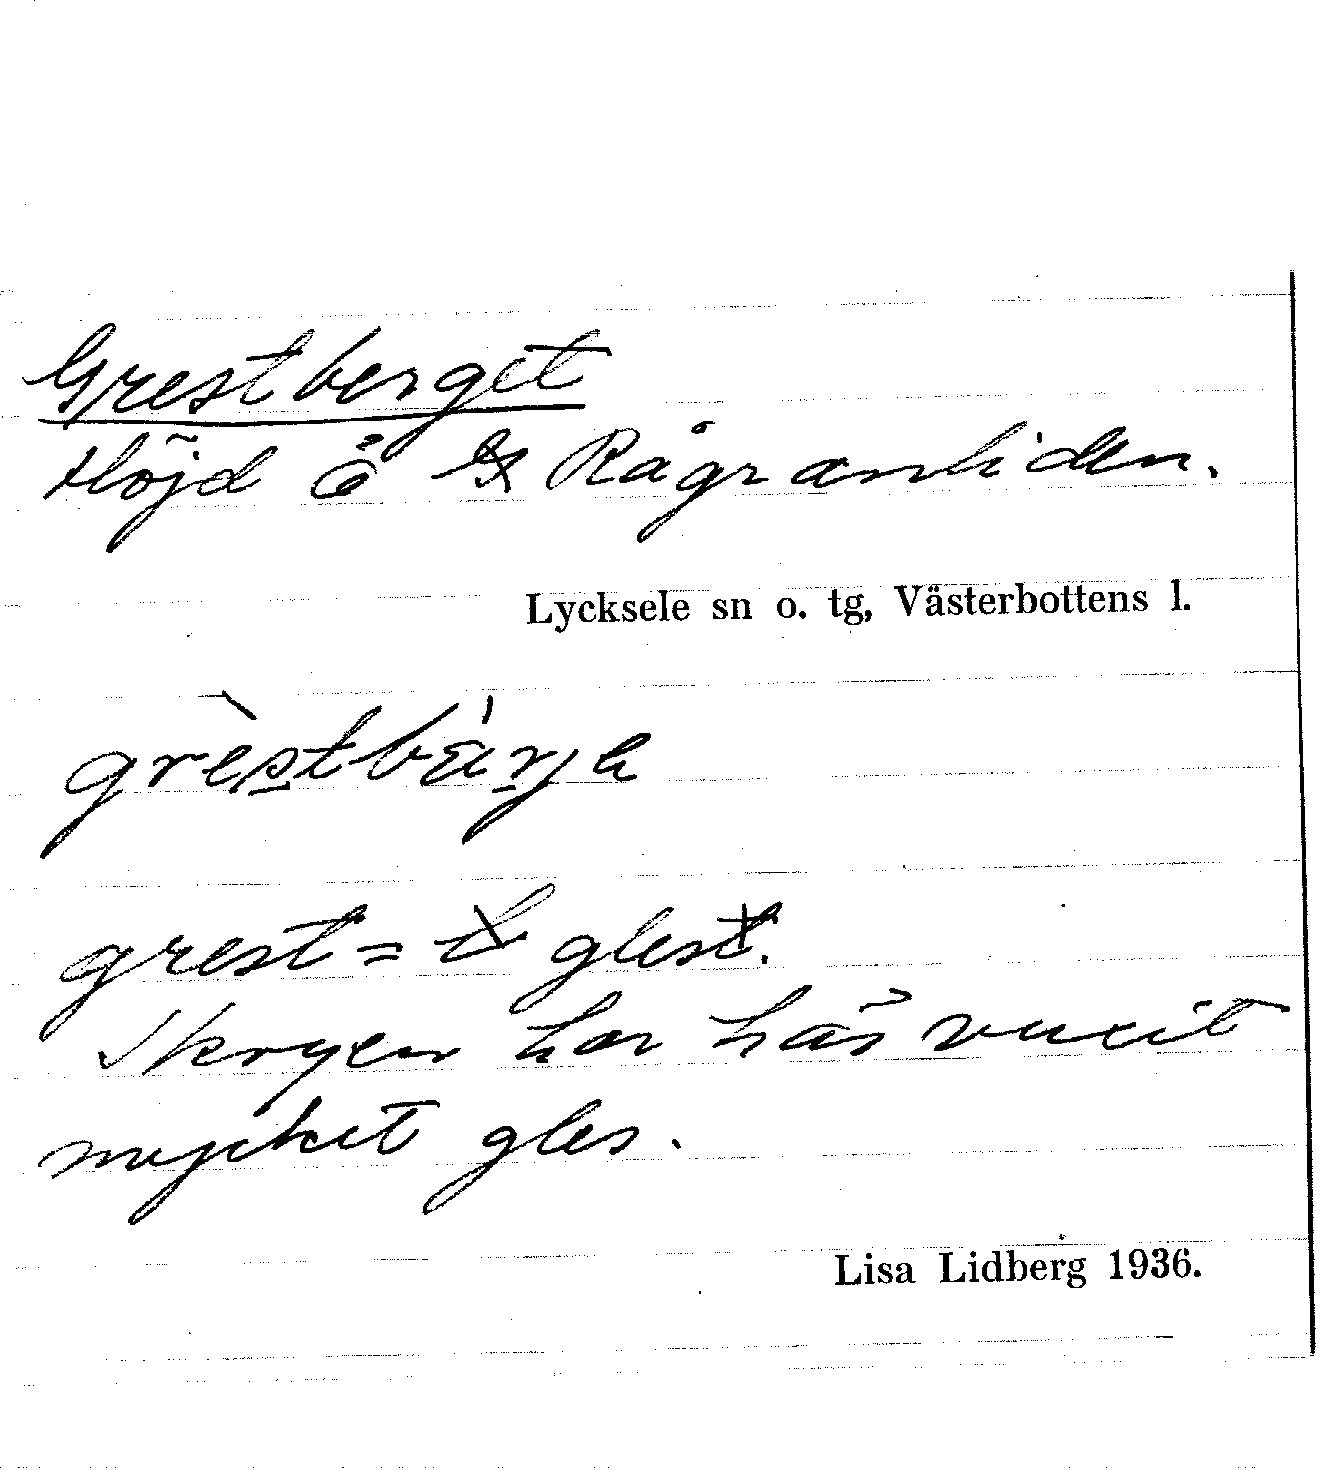 Grestberget
Höjd Ö Rågranliden.
Lycksele sn o. tg, Västerbottens l.
grest = gles.
Skogen har här vuxit
mycket gles.
Lisa Lidberg 1936.